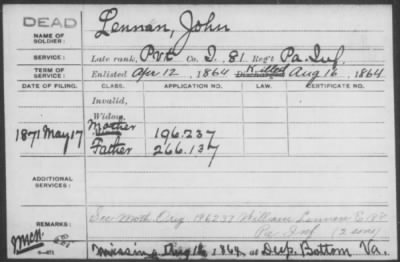 DEAD
NAME OF SOLDIER: Lennan, John
SERVICE: Late rank, Pvt Co. I, 81 Reg't Pa. Inf.
TERM OF SERVICE: Enlisted Apr 12, 1864 Discharged Killed Aug 16, 1864
DATE OF FILING. CLASS. APPLICATION NO. LAW. CERTIFICATE NO.
Invalid,
Widow,
Mother 196.237
1871 May 17 Father 266.137
ADDITIONAL SERVICES:
REMARKS: See Moth. Orig. 196237 William Lennan
Pa. Inf (2 sons)
Missing Aug 16 1864 at Deep Bottom Va.